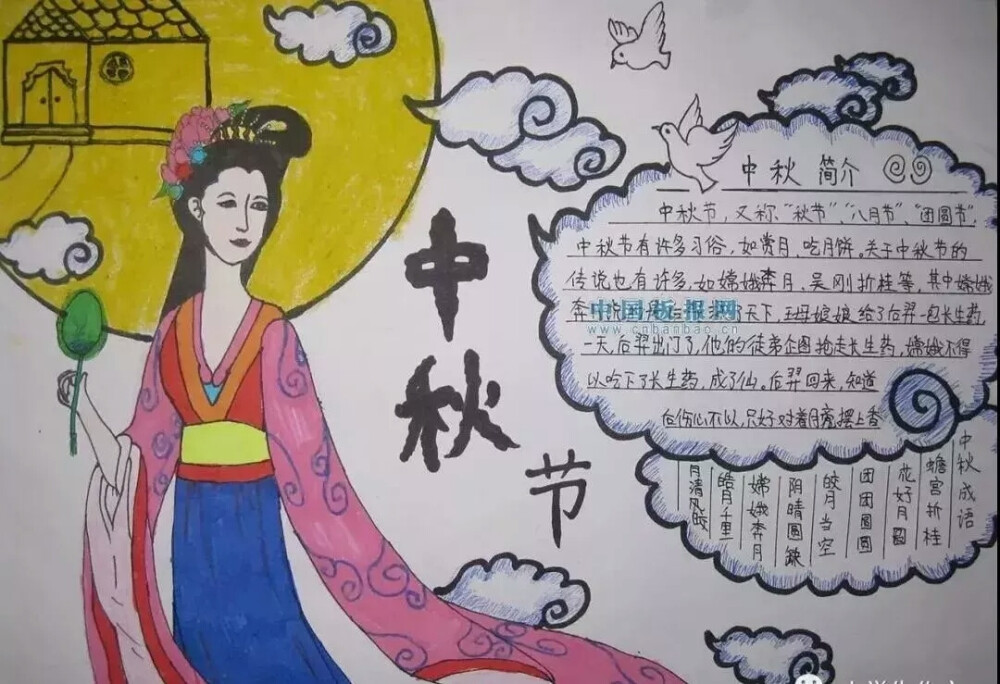 中秋节
中秋简介
中秋节，又称“秋节”“八月节”、“团圆节”，
中秋节有许多习俗，如赏月、吃月饼。关于中秋节的
传说也有许多，如嫦娥奔月，吴刚折桂等，其中嫦娥
奔月 天下，王母娘娘给了后羿一包长生药，
中国板报网
www.cnbanbao.cn
一天，后羿出门了，他的徒弟企图抢走长生药，嫦娥不得
以吃下了长生药，成了仙。后羿回来，知道
后伤心不以，只好对着月亮摆上香
中秋成语
蟾宫折桂
花好月圆
团团圆圆
皎月当空
阴晴圆缺
嫦娥奔月
皓月千里
月清风皎